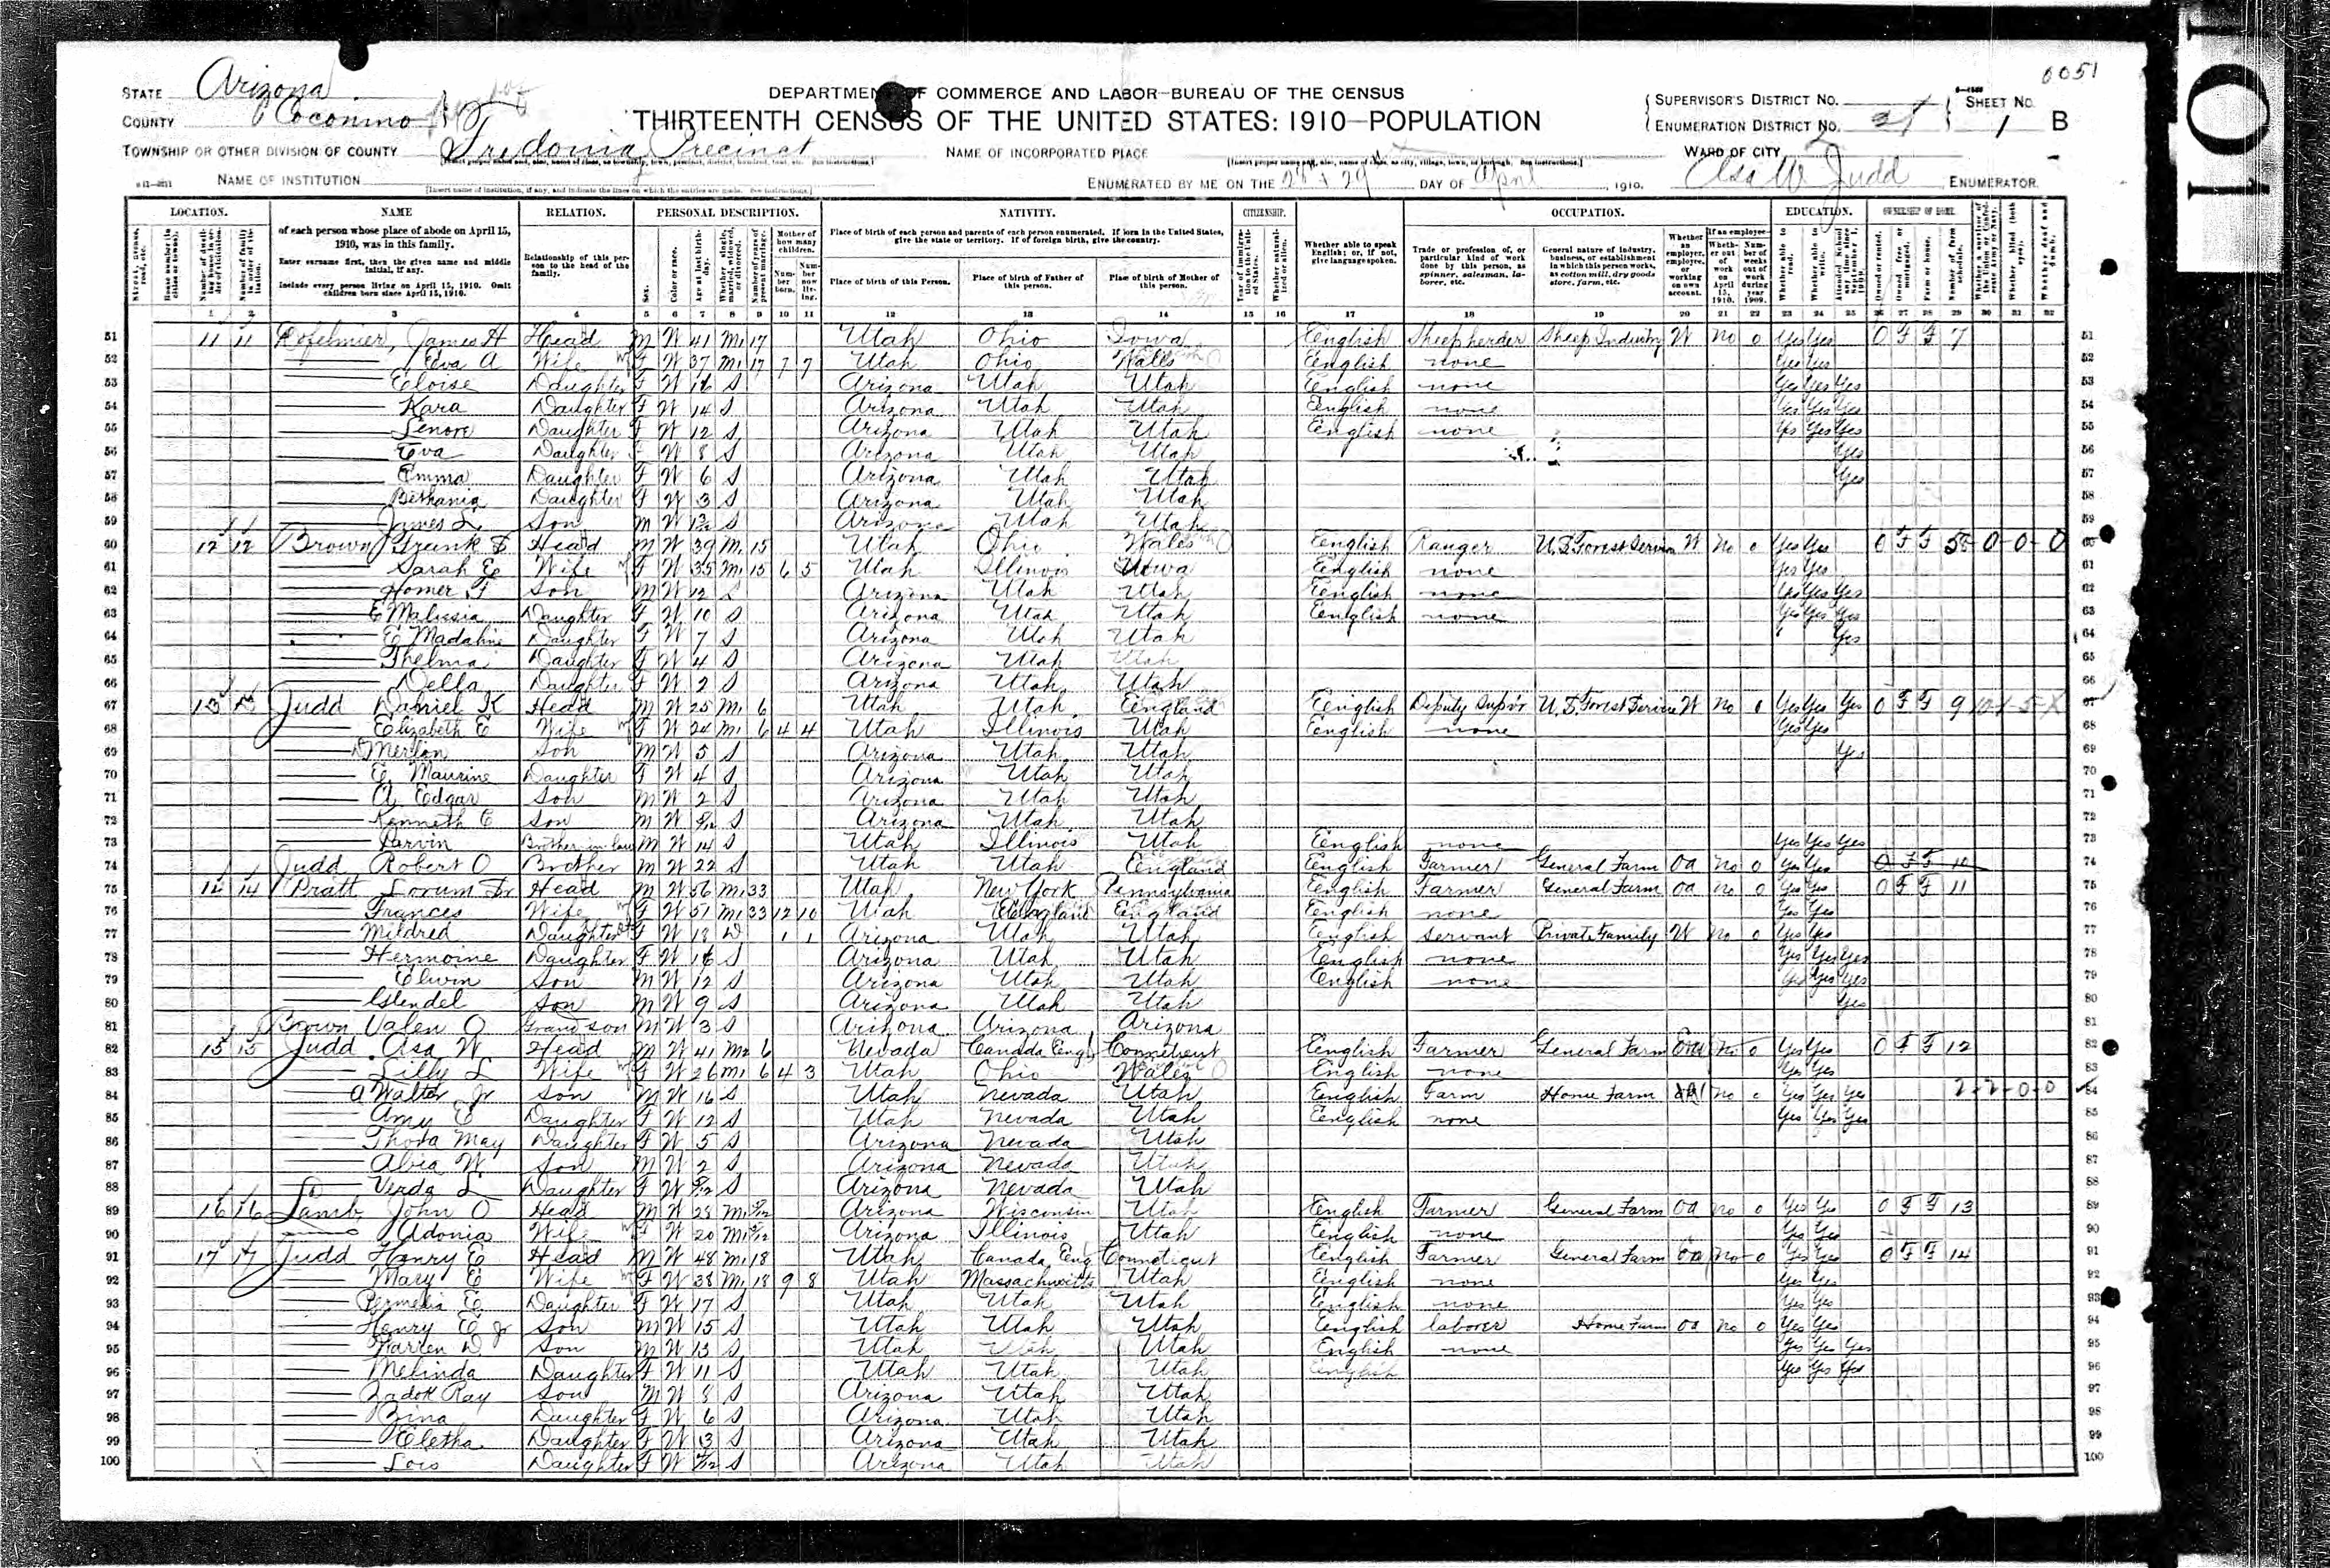 0051
STATE Arizona
COUNTY Coconino
TOWNSHIP OR OTHER DIVISION OF COUNTY Fredonia Precinct
NAME OF INSTITUTION
DEPARTMENT OF COMMERCE AND LABOR—BUREAU OF THE CENSUS
THIRTEENTH CENSUS OF THE UNITED STATES: 1910—POPULATION
NAME OF INCORPORATED PLACE
ENUMERATED BY ME ON THE 28 & 29 DAY OF April, 1910. Asa W Judd, ENUMERATOR.
SUPERVISOR'S DISTRICT NO.
ENUMERATION DISTRICT NO.
SHEET NO. 1 B
WARD OF CITY
101
LOCATION. NAME RELATION. PERSONAL DESCRIPTION. NATIVITY. CITIZENSHIP. OCCUPATION. EDUCATION. OWNERSHIP OF HOME.
of each person whose place of abode on April 15, 1910, was in this family.
Enter surname first, then the given name and middle initial, if any.
Include every person living on April 15, 1910. Omit children born since April 15, 1910.
Relationship of this person to the head of the family.
Place of birth of each person and parents of each person enumerated. If born in the United States, give the state or territory. If of foreign birth, give the country.
Place of birth of this Person. Place of birth of Father of this person. Place of birth of Mother of this person.
Whether able to speak English; or, if not, give language spoken.
Trade or profession of, or particular kind of work done by this person, as spinner, salesman, laborer, etc.
General nature of industry, business, or establishment in which this person works, as cotton mill, dry goods store, farm, etc.
51 11 11 James H Head M W 41 M1 17 Utah Ohio Iowa English Sheepherder Sheep Industry W No 0 Yes Yes O F F 7
52 Eva A Wife F W 37 M1 17 7 7 Utah Ohio Wales English none Yes Yes
53 Eloise Daughter F W 16 S Arizona Utah Utah English none Yes Yes Yes
54 Kara Daughter F W 14 S Arizona Utah Utah English none Yes Yes Yes
55 Lenore Daughter F W 12 S Arizona Utah Utah English none Yes Yes Yes
56 Eva Daughter F W 8 S Arizona Utah Utah Yes
57 Emma Daughter F W 6 S Arizona Utah Utah Yes
58 Bethania Daughter F W 3 S Arizona Utah Utah
59 James L Son M W S Arizona Utah Utah
60 12 12 Brown Frank Head M W 39 M1 15 Utah Ohio Wales English Ranger U.S. Forest Service W No 0 Yes Yes O F F
61 Sarah E Wife F W 35 M1 15 6 5 Utah Illinois Iowa English none Yes Yes
62 Homer F Son M W 12 S Arizona Utah Utah English none Yes Yes Yes
63 E Malissia Daughter F W 10 S Arizona Utah Utah English none Yes Yes Yes
64 E Madaline Daughter F W 7 S Arizona Utah Utah Yes
65 Thelma Daughter F W 4 S Arizona Utah Utah
66 Della Daughter F W 2 S Arizona Utah Utah
67 13 13 Judd Daniel K Head M W 25 M1 6 Utah Utah England English Deputy Supvr U.S. Forest Service W No 0 Yes Yes Yes O F F 9
68 Elizabeth E Wife F W 24 M1 6 4 4 Utah Illinois Utah English none Yes Yes
69 D Merlin Son M W 5 S Arizona Utah Utah Yes
70 E Maurine Daughter F W 4 S Arizona Utah Utah
71 A Edgar Son M W 2 S Arizona Utah Utah
72 Kenneth E Son M W S Arizona Utah Utah
73 Brother-in-law M W 14 S Utah Illinois Utah English none Yes Yes Yes
74 Judd Robert O Brother M W 22 S Utah Utah England English Farmer General Farm OA No 0 Yes Yes O F F 10
75 14 14 Pratt Lorum Sr Head M W 56 M1 33 Utah New York Pennsylvania English Farmer General Farm OA No 0 Yes Yes O F F 11
76 Frances Wife F W 51 M1 33 12 10 Utah England England English none Yes Yes
77 Mildred Daughter F W 18 D 1 1 Arizona Utah Utah English servant Private Family W No 0 Yes Yes
78 Hermoine Daughter F W 16 S Arizona Utah Utah English none Yes Yes Yes
79 Elwin Son M W 12 S Arizona Utah Utah English none Yes Yes Yes
80 Glendel Son M W 9 S Arizona Utah Utah Yes
81 Brown Valen O Grandson M W 3 S Arizona Arizona Arizona
82 15 15 Judd Asa W Head M W 41 M2 6 Nevada Canada Eng Conneticut English Farmer General Farm OA No 0 Yes Yes O F F 12
83 Lilly L Wife F W 26 M1 6 4 3 Utah Ohio Wales English none Yes Yes
84 A Walter Jr Son M W 16 S Utah Nevada Utah English Farm Home Farm No Yes Yes Yes 2-2-0-0
85 Amy E Daughter F W 12 S Utah Nevada Utah English none Yes Yes Yes
86 Thora May Daughter F W 5 S Arizona Nevada Utah
87 Abia W Son M W 2 S Arizona Nevada Utah
88 Verda L Daughter F W S Arizona Nevada Utah
89 16 16 Lamb John O Head M W 28 M1 Arizona Wisconsin Utah English Farmer General Farm OA No 0 Yes Yes O F F 13
90 Adonia Wife F W 20 M1 Arizona Illinois Utah English none Yes Yes
91 17 17 Judd Henry E Head M W 48 M1 18 Utah Canada Eng Conneticut English Farmer General Farm OA No 0 Yes Yes O F F 14
92 Mary E Wife F W 38 M1 18 9 8 Utah Massachusetts Utah English none Yes Yes
93 Permelia E Daughter F W 17 S Utah Utah Utah English none Yes Yes
94 Henry E Jr Son M W 15 S Utah Utah Utah English laborer Home Farm OA No 0 Yes Yes
95 Warren D Son M W 13 S Utah Utah Utah English none Yes Yes Yes
96 Melinda Daughter F W 11 S Utah Utah Utah English Yes Yes Yes
97 Zadok Ray Son M W 8 S Arizona Utah Utah
98 Zina Daughter F W 6 S Arizona Utah Utah
99 Eletha Daughter F W 3 S Arizona Utah Utah
100 Lois Daughter F W S Arizona Utah Utah